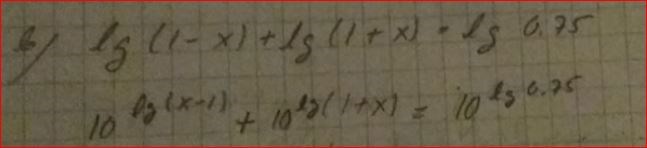 в) lg (1 - x) + lg (1 + x) = lg 0.75
10^lg(x-1) + 10^lg(1+x) = 10^lg 0.75